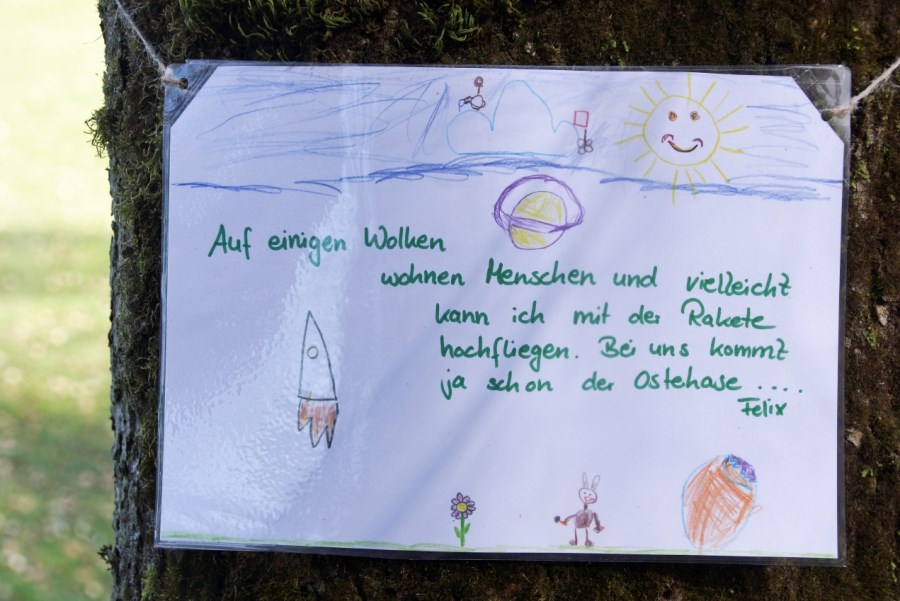 Auf einigen Wolken
wohnen Menschen und vielleicht
kann ich mit der Rakete
hochfliegen. Bei uns kommt
ja schon der Ostehase ....
Felix